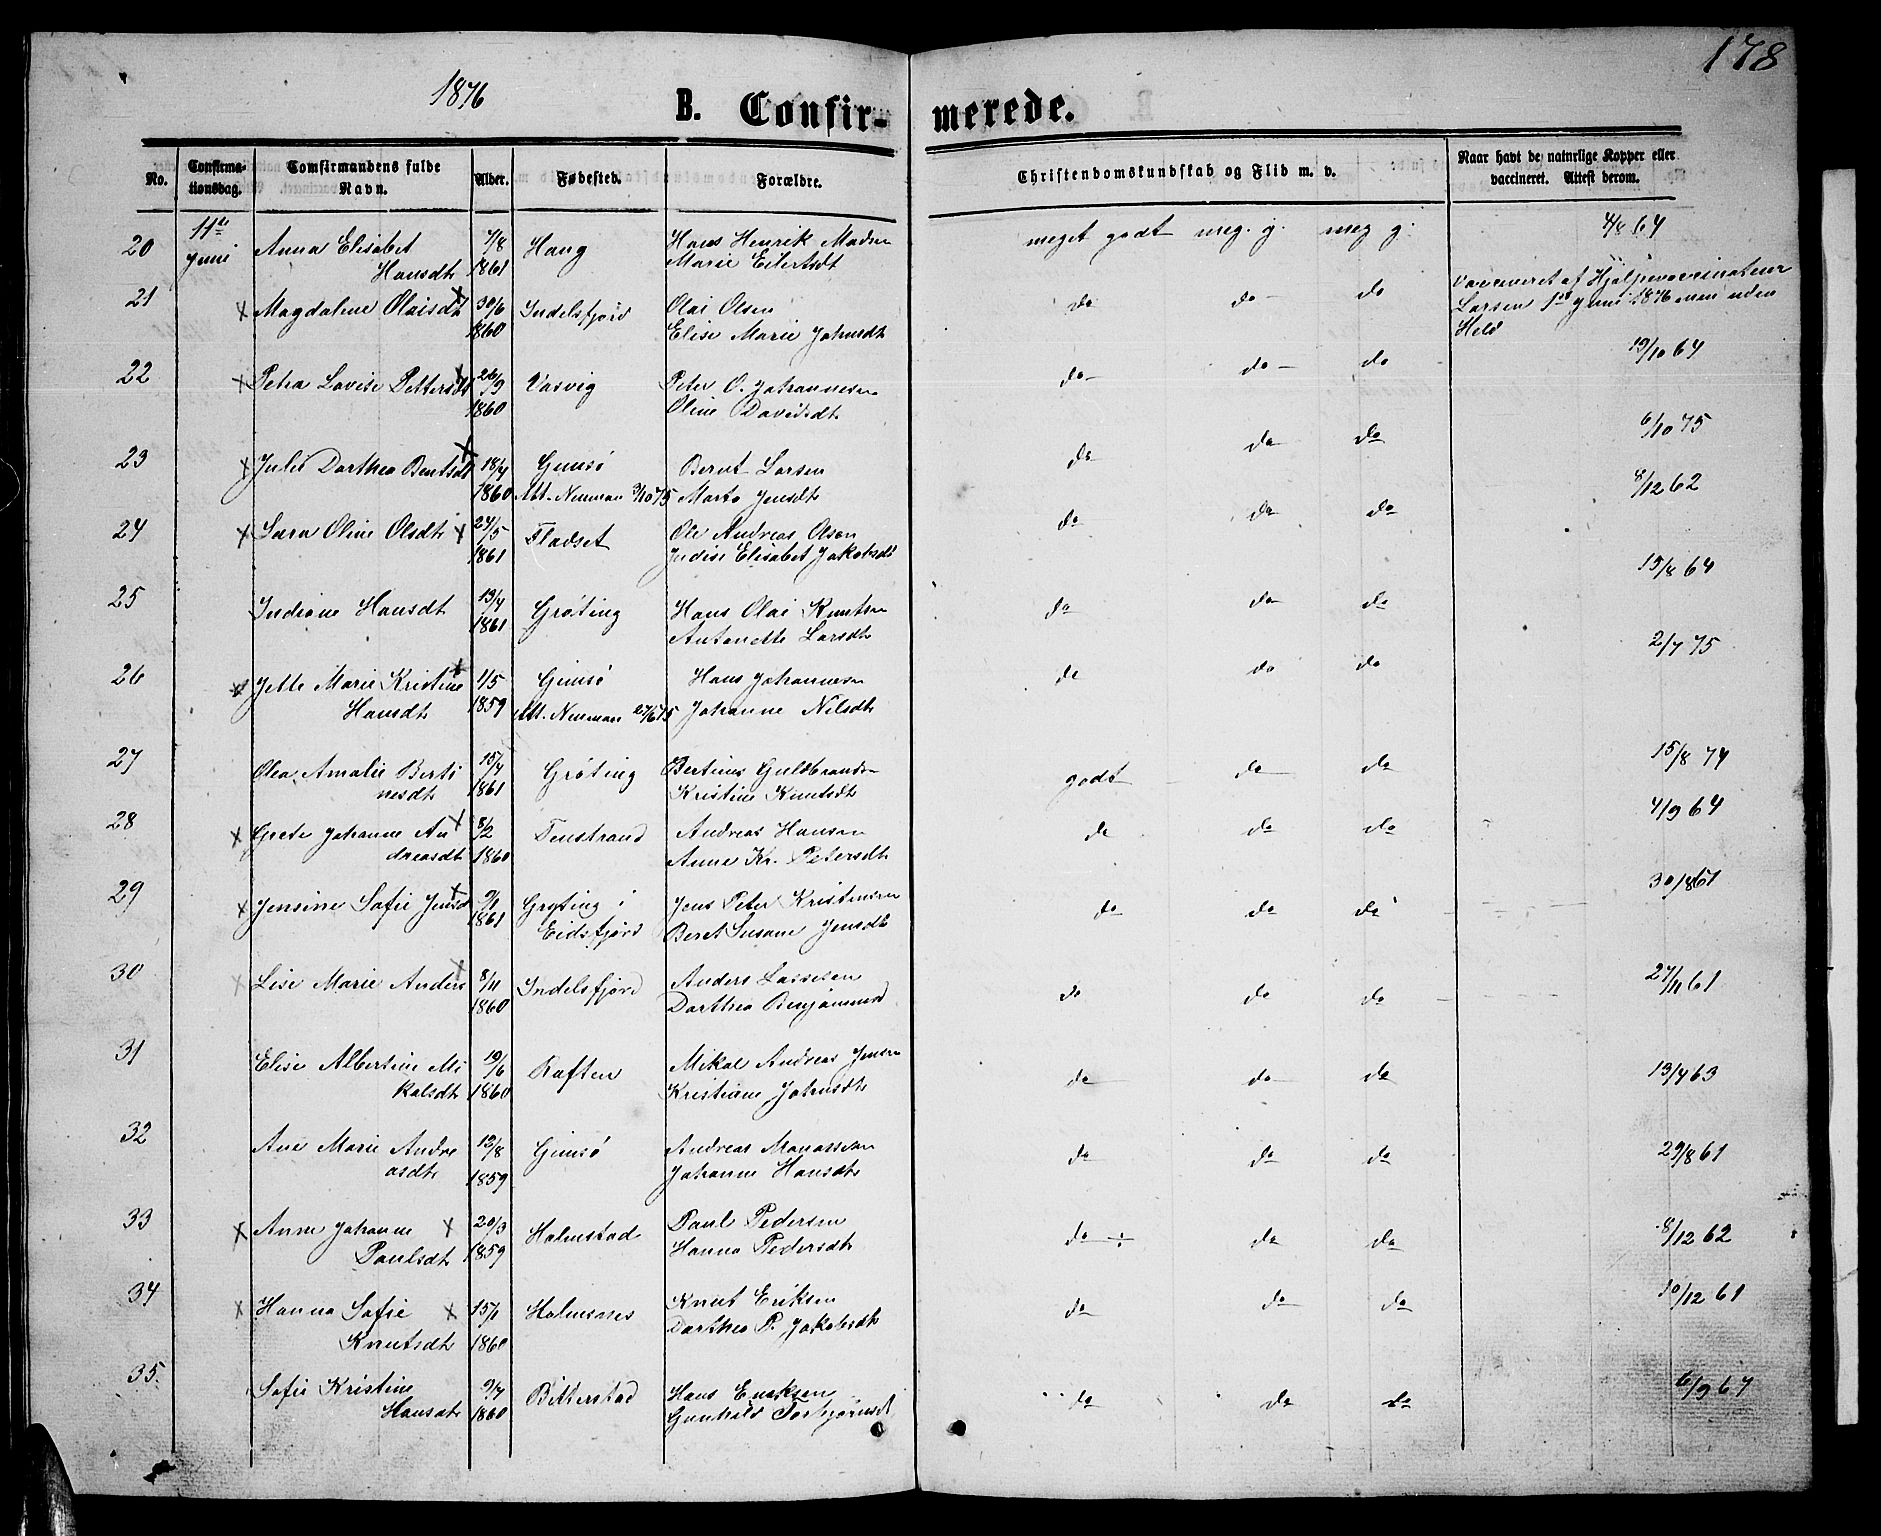 178
1876
B. Confir-
merede.
No.
Confirma-
tionsdag.
Comfirmandens fulde
Navn.
Alder.
Fødested.
Forældre.
Christendomskundskab og Flid m. v.
Naar havt de naturlige Kopper eller
vaccineret. Attest derom.
20 11te Juni Anna Elisabet 7/8 Haug Hans Henrik Madsen meget godt meg. g. meg g. 4/8 64
Hansdtr 1861 Marie Eilertsdt
21 Magdalene Olaisdt 30/6 Indelsfjord Olai Olsen do do do Vaccineret af Hjelpevaccinateur
1860 Elise Marie Johnsdt Larsen 1ste Juni 1876 men uden
Held
22 Petra Lovise Pettersdt 26/9 Vasvig Peter O. Johannesen do do do 19/10 64
1860 Oline Davidsdt
23 Julie Dorthea Berntsdt 18/4 Gimsø Bernt Larsen do do do 6/10 75
1860 Att. Neuman 3/10 75 Marta Jensdt
24 Sara Oline Olsdt 24/5 Fladset Ole Andreas Olsen do do do 8/12 62
1861 Elisabet Jakobsdt
25 Indiane Hansdt 13/4 Grøting Hans Olai Knutsen do do do 15/8 64
1861 Antonette Larsdt
26 Jette Marie Kristine 1/5 Gimsø Hans Johannesen do do do 2/7 75
Hansdt 1859 Att. Neuman 27/6 75 Johanne Nilsdt
27 Olea Amalie Berti 15/4 Grøting Bertinus Guldbrandsen godt do do 15/8 74
nesdt 1861 Kristine Knutsdt
28 Grete Johanne An 8/2 Tenstrand Andreas Hansen do do do 4/9 64
dreasdt 1860 Anne Kr. Petersdt
29 Jensine Sofie Jensd 9/1 Gryting i Jens Peter Kristensen do do do 30/8 61
1861 Eidsfjord Beret Susane Jensdt
30 Lise Marie Anders 8/11 Indelsfjord Anders Lassesen do do do 27/11 61
1860 Dorthea Benjaminsd
31 Elise Albertine Mi 19/6 Raften Mikal Andreas Jensen do do do 13/4 63
kalsdt 1860 Kristiane Johnsdt
32 Ane Marie Andre 12/8 Gimsø Andreas Manassesen do do do 29/8 61
asdt 1859 Johanne Hansdt
33 Anne Johanne 20/3 Holmstad Paul Pedersen do ÷ do do 8/12 62
Paulsdt 1859 Hanna Pedersdt
34 Hanna Sofie 15/1 Holmsnes Knut Eriksen do do do 10/12 61
Knutsdt 1860 Dorthea P. Jakobsdt
35 Sofie Kristine 9/4 Bitterstad Hans do do do 6/9 67
Hansdt 1860 Gunhild Torbjørnsdt